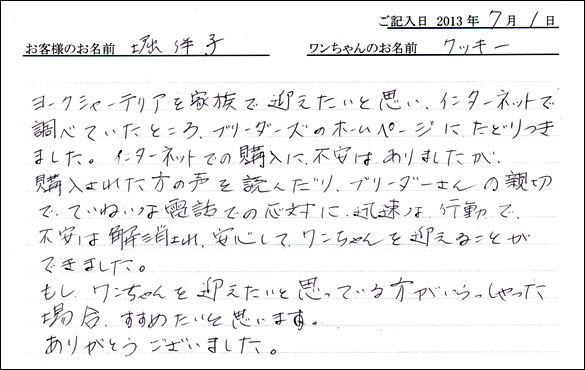 ご記入日 2013年 7月 1日
お客様のお名前 堀 洋子 ワンちゃんのお名前 クッキー
ヨークシャーテリアを家族で迎えたいと思い、インターネットで
調べていたところ、ブリーダーズのホームページにたどりつき
ました。インターネットでの購入に、不安はありましたが、
購入された方の声を読んだり、ブリーダーさんの親切
で、ていねいな電話での応対に、迅速な行動で、
不安は解消され、安心して、ワンちゃんを迎えることが
できました。
もし、ワンちゃんを迎えたいと思っている方がいらっしゃった
場合、すすめたいと思います。
ありがとうございました。